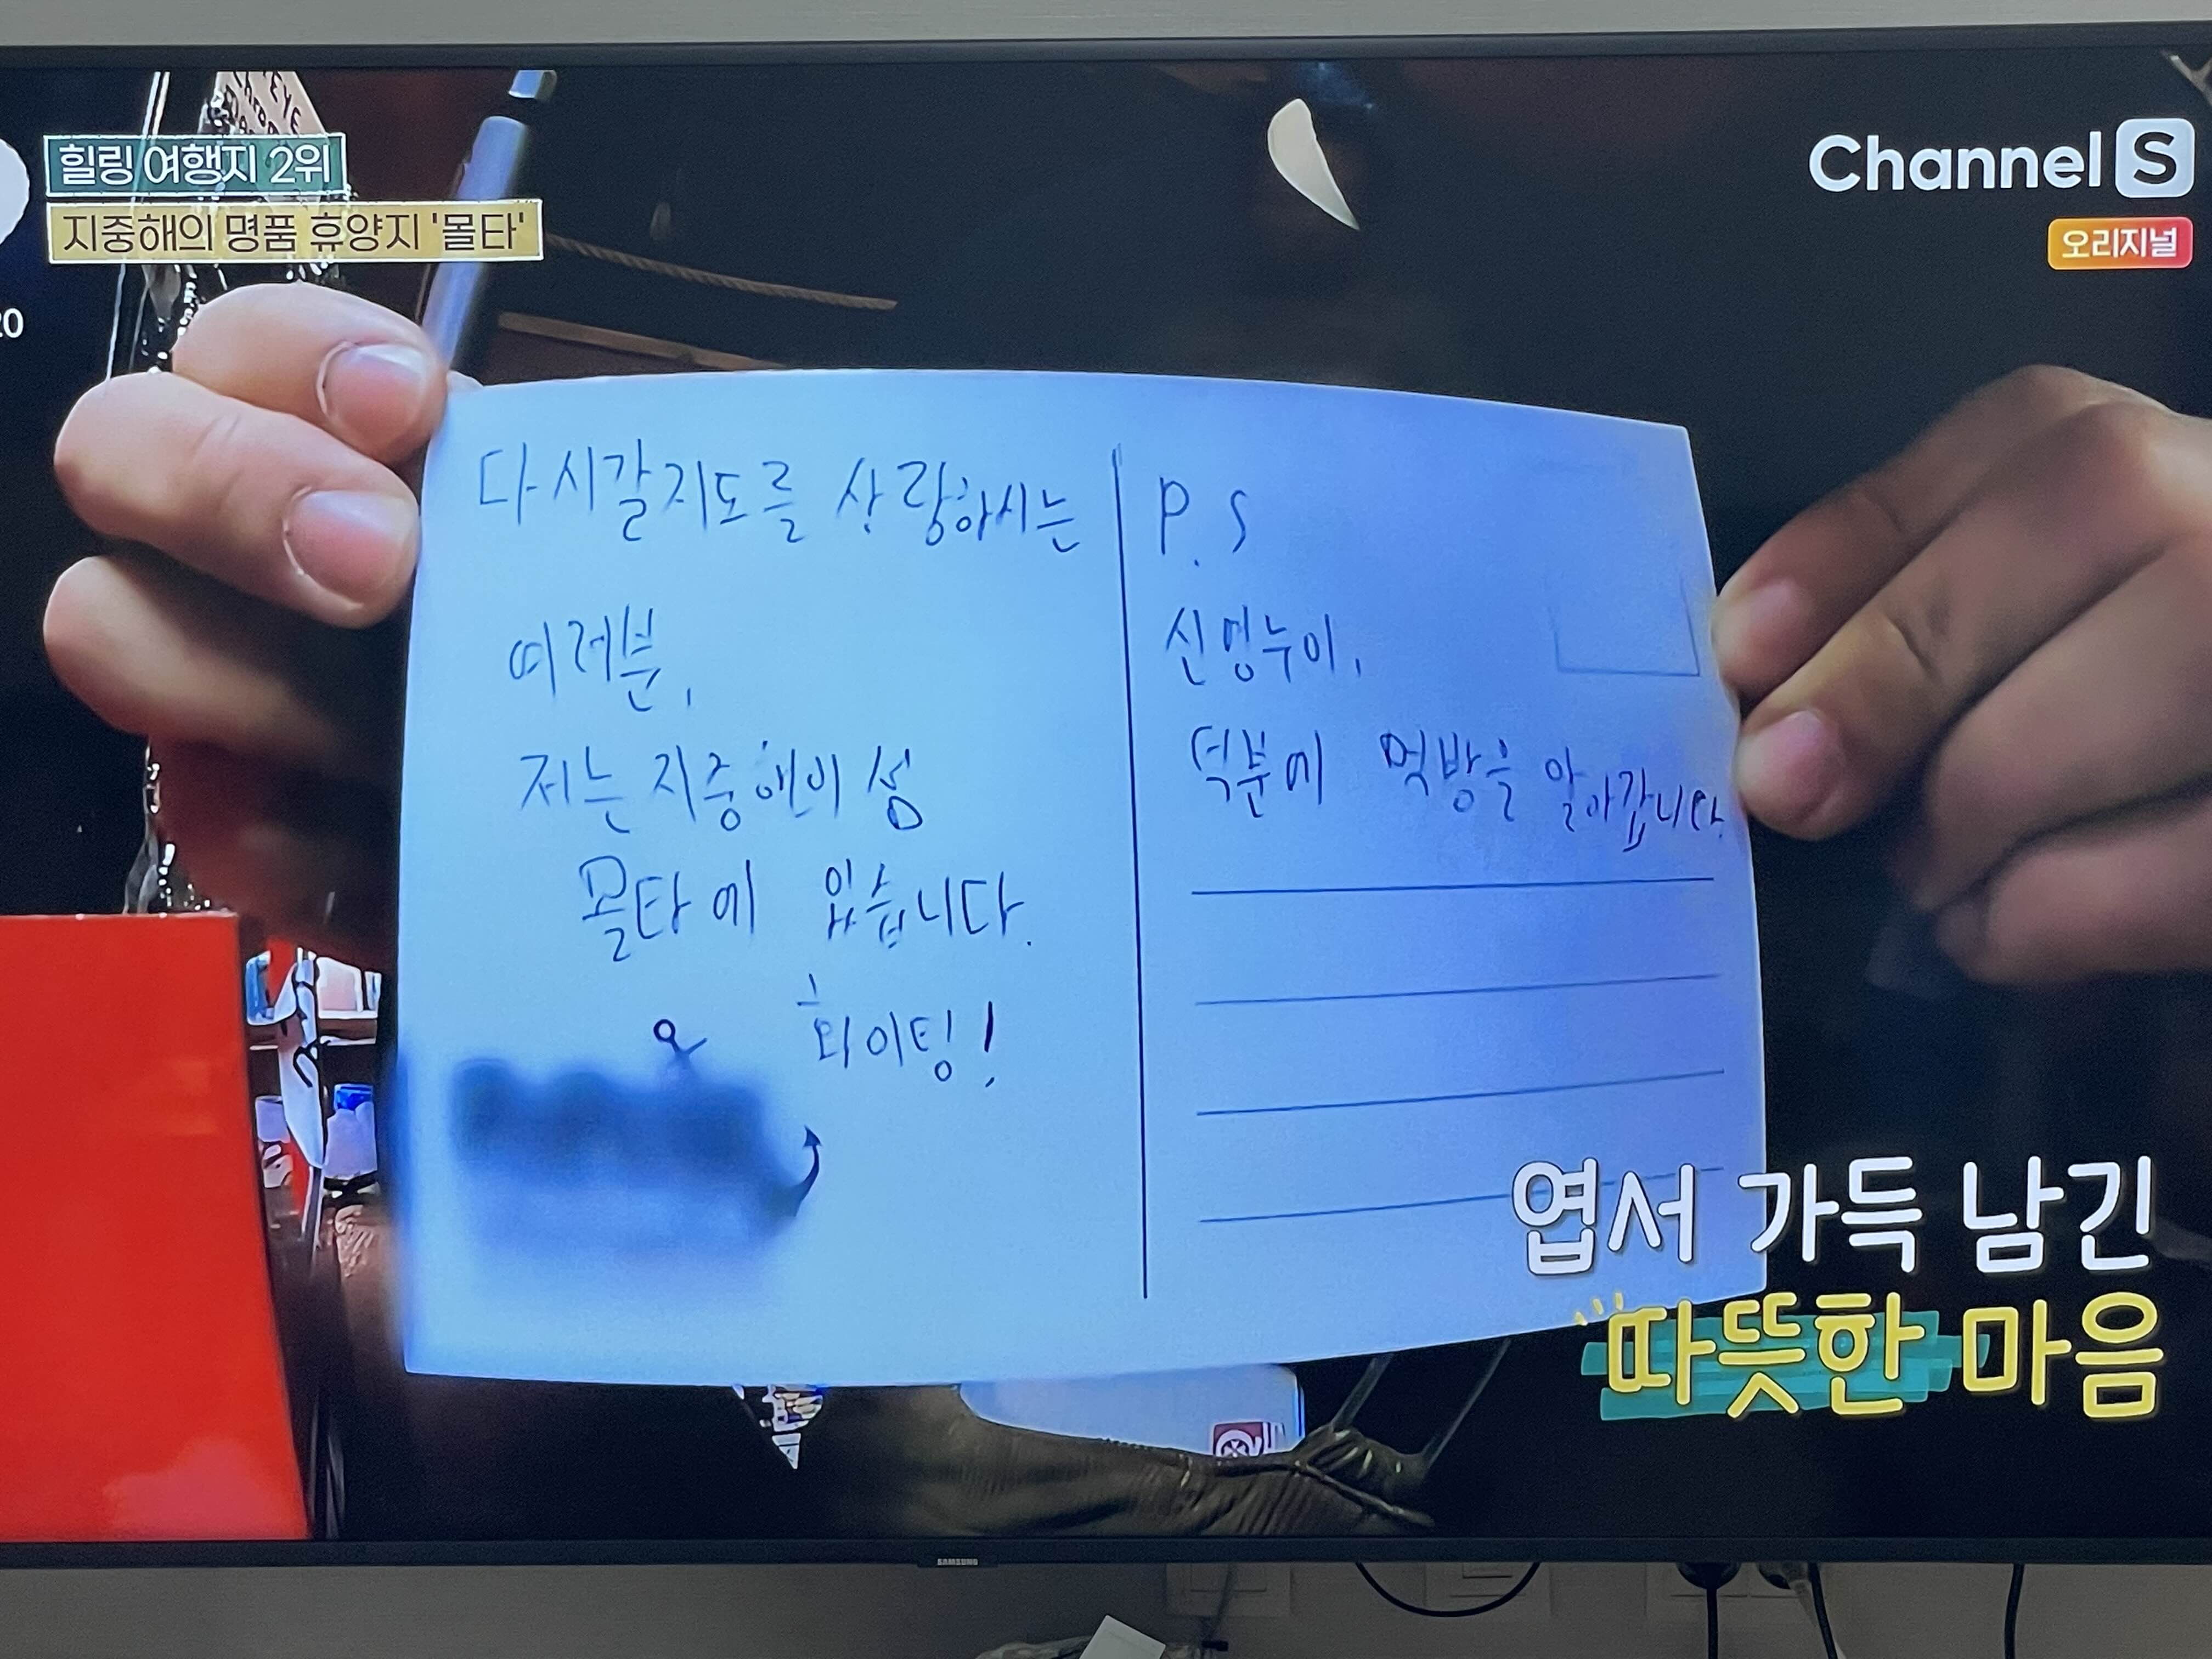 힐링 여행지 2위
지중해의 명품 휴양지 '몰타'
Channel S
오리지널
20
다시갈지도를 사랑하시는
여러분,
저는 지중해의 섬
몰타에 있습니다.
화이팅!
P.S
신영누이,
덕분에 먹방을 알아갑니다.
엽서 가득 남긴
따뜻한 마음
SAMSUNG